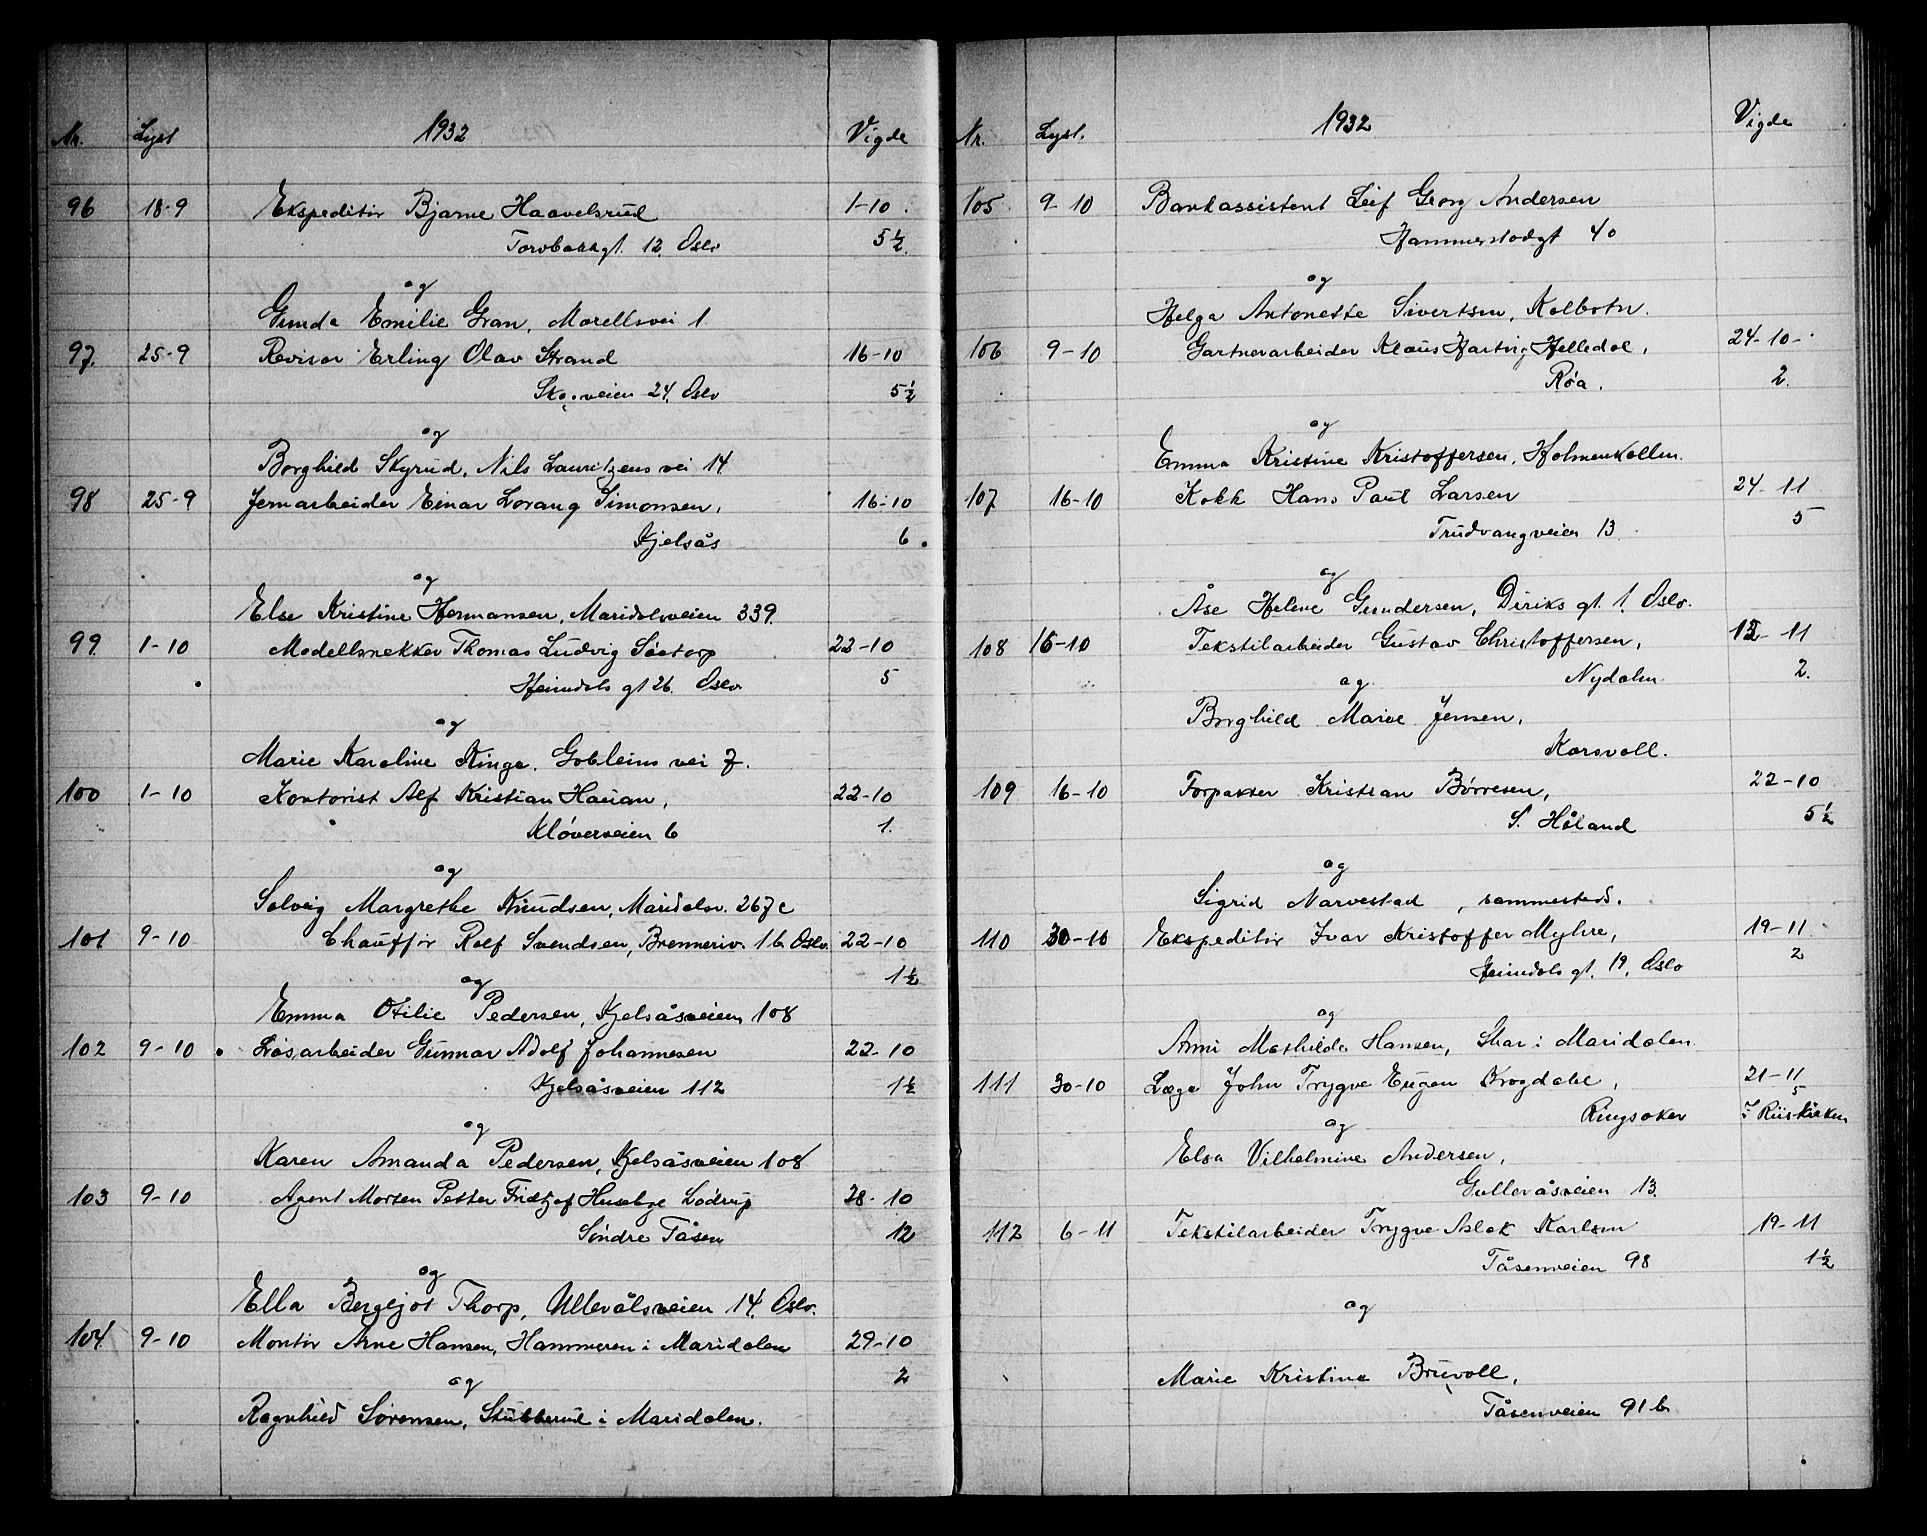 Nr. Lyst 1932 Vigde
96 18-9 Ekspeditør Bjarne Haavelsrud 1-10
Torvbakkgt. 12, Oslo 5½
og
Gunda Emilie Gran, Morellsvei 1
97. 25-9 Revisor Erling Olav Strand 16-10
Skogveien 24, Oslo 5½
og
Borghild Skyrud, Nils Lauritzens vei 14
98 25-9 Jernarbeider Einar Lorang Simonsen, 16-10
Kjelsås 6
og
Else Kristine Hermansen, Maridalsveien 339.
99 1-10 Modellsnekker Thomas Ludvig Søetorp 22-10
Heimdals gt 26. Oslo 5
og
Marie Karoline Ringe. vei 7.
100 1-10 Kontorist Alf Kristian Hauan, 22-10
Kløverveien 6 1.
og
Solveig Margrethe Knudsen, Maridalsv. 267c
101 9-10 Chauffør Rolf Svendsen, Brenneriv. 16 Oslo. 22-10
1½
og
Emma Otilie Pedersen, Kjelsåsveien 108
102 9-10 Løsarbeider Gunnar Adolf Johannesen 22-10
Kjelsåsveien 112 1½
og
Karen Amanda Pedersen, Kjelsåsveien 108
103 9-10 Agent Morten Petter Fridtjof Husebye Lødrup 28-10
Søndre Tåsen 12
og
Ella Bergljot Thorp, Ullevålsveien 14, Oslo.
104 9-10 Montør Arne Hansen, Hammeren i Maridalen 29-10
2
og
Ragnhild Sørensen, Stubberud i Maridalen.
Nr. Lyst. 1932 Vigde
105 9-10 Bankassistent Leif Georg Andersen
Hammerstadgt 40
og
Helga Antonette Sivertsen, Kolbotn.
106 9-10 Gartnerarbeider Klaus Hartvig Helledal, 24-10-
Røa. 2.
og
Emma Kristine Kristoffersen, Holmenkollen.
107 16-10 Kokk Hans Paul Larsen 24-11
Trudvangveien 13 5
og
Åse Helene Gundersen, Diriks gt. 1, Oslo.
108 16-10 Tekstilarbeider Gustav Christoffersen, 12-11
og Nydalen 2.
Borghild Marie Jensen,
Korsvoll.
109 16-10 Forpakter Kristian Børresen, 22-10
S. Håland 5½
og
Sigrid Narvestad, sammesteds.
110 30-10 Ekspeditør Ivar Kristoffer Myhre, 19-11
Heimdals gt. 19, Oslo 2
og
Anni Mathilde Hansen, Skar i Maridalen
111 30-10 Læge John Trygve Eugen Krogdahl, 21-11
5
Ringsaker i Riiskirken
og
Elsa Vilhelmine Andersen,
Gullevåsveien 13.
112 6-11 Tekstilarbeider Trygve Aslak Karlsen 19-11
Tåsenveien 98 1½
og
Marie Kristine Bruvoll,
Tåsenveien 91b